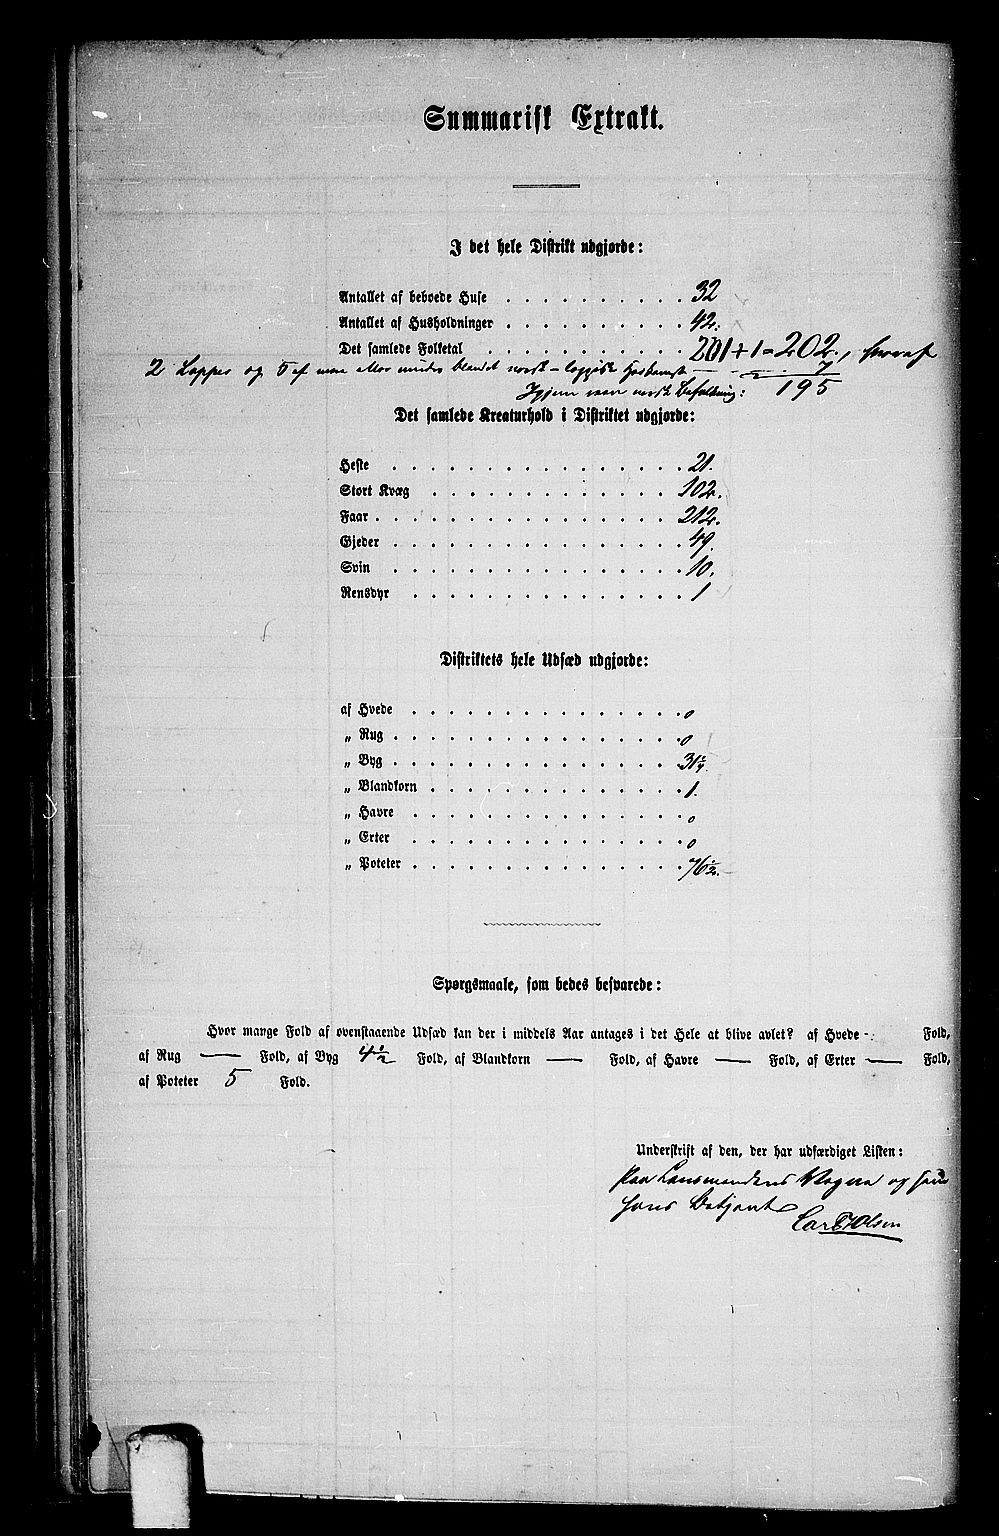 Summarisk Extrakt.
I det hele Distrikt udgjorde:
Antallet af beboede Huse . . . . . . . . . . 32
Antallet af Husholdninger . . . . . . . . . . 42.
Det samlede Folketal . . . . . . . . . . . 201+1=202., hvoraf
2 Lapper og 5 af mere eller mindre blandet norsk-lappisk Herkomst — - = 7
Igjen ren norsk Befolkning: 195
Det samlede Kreaturhold i Distriktet udgjorde:
Heste . . . . . . . . . . . . . . . . 21.
Stort Kvæg . . . . . . . . . . . . . . 102.
Faar . . . . . . . . . . . . . . . . . 212.
Gjeder . . . . . . . . . . . . . . . . 49.
Svin . . . . . . . . . . . . . . . . 10.
Rensdyr . . . . . . . . . . . . . . . 1
Distriktets hele Udsæd udgjorde:
af Hvede . . . . . . . . . . . . . . . 0
„ Rug . . . . . . . . . . . . . . . . 0
„ Byg . . . . . . . . . . . . . . . . 31¼.
„ Blandkorn . . . . . . . . . . . . . . 1.
„ Havre . . . . . . . . . . . . . . . 0
„ Erter . . . . . . . . . . . . . . . 0
„ Poteter . . . . . . . . . . . . . . . 76½.
Spørgsmaale, som bedes besvarede:
Hvor mange Fold af ovenstaaende Udsæd kan der i middels Aar antages i det Hele at blive avlet? af Hvede - Fold,
af Rug — Fold, af Byg 4½ Fold, af Blandkorn — Fold, af Havre — Fold, af Erter — Fold,
af Poteter 5 Fold.
Underskrift af den, der har udfærdiget Listen:
Paa Lensmandens Vegne og som
hans Betjent
Carl Olsen